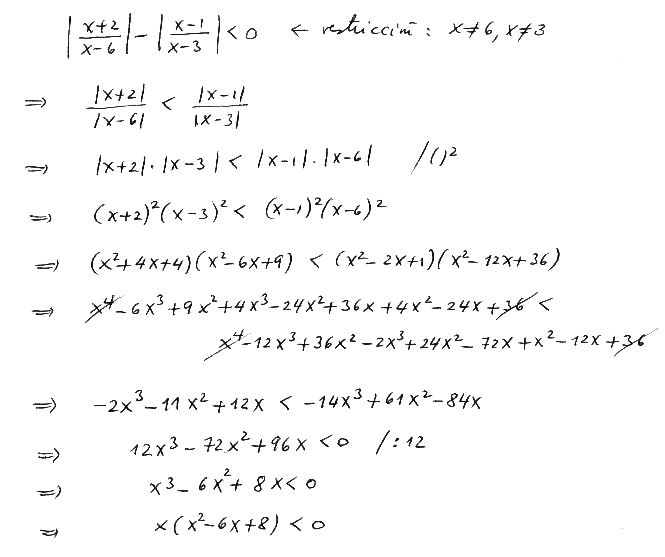 |x+2/x-6| - |x-1/x-3| < 0 ← restricción: x≠6, x≠3
⇒ |x+2|/|x-6| < |x-1|/|x-3|
⇒ |x+2|·|x-3| < |x-1|·|x-6| /()²
⇒ (x+2)²(x-3)² < (x-1)²(x-6)²
⇒ (x²+4x+4)(x²-6x+9) < (x²-2x+1)(x²-12x+36)
⇒ x⁴-6x³+9x²+4x³-24x²+36x+4x²-24x+36 <
x⁴-12x³+36x²-2x³+24x²-72x+x²-12x+36
⇒ -2x³-11x²+12x < -14x³+61x²-84x
⇒ 12x³-72x²+96x < 0 /:12
⇒ x³-6x²+8x < 0
⇒ x(x²-6x+8) < 0